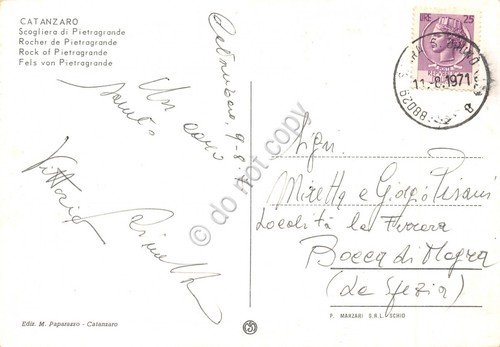 CATANZARO
Scogliera di Pietragrande
Rocher de Pietragrande
Rock of Pietragrande
Fels von Pietragrande
LIRE 25
11.8.1971
88029
Catanzaro, 9-8-71
Un caro
saluto
Vittorio
do not copy
Sigri
Miretta e Giorgio Pisani
Località la Ferrara
Bocca di Magra
(La Spezia)
Ediz. M. Paparazzo - Catanzaro
P. MARZARI S.R.L. SCHIO